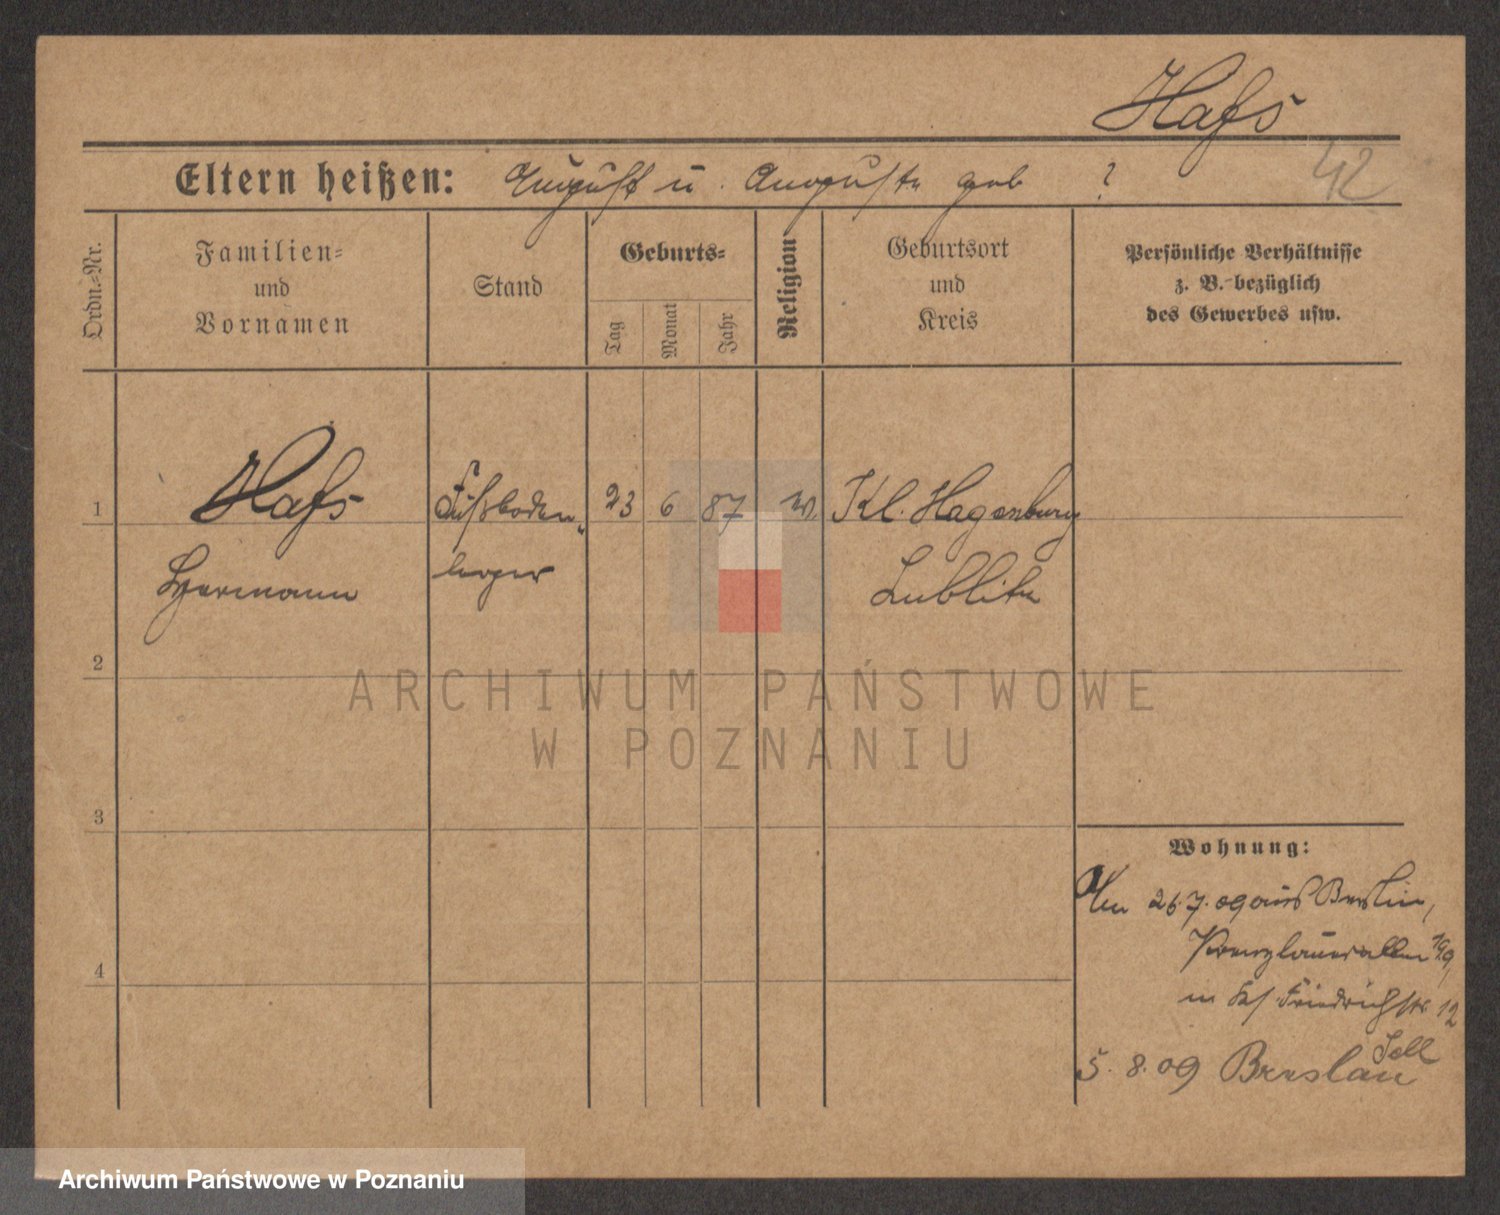 Hafs
42
Eltern heißen: August u. Auguste geb ?
Ordn.-Nr.
Familien-
und
Vornamen
Stand
Geburts-
Tag
Monat
Jahr
Religion
Geburtsort
und
Kreis
Persönliche Verhältnisse
z. B. bezüglich
des Gewerbes usw.
1
Hafs
Hermann
Fußboden
leger
23
6
87
Kl. Hagenburg
Lublitz
2
3
4
Wohnung:
26.7.09 aus Berlin,
Prenzlauerallee
Friedrichstr 12
Jell
5. 8. 09 Breslau
ARCHIWUM PAŃSTWOWE
W POZNANIU
Archiwum Państwowe w Poznaniu